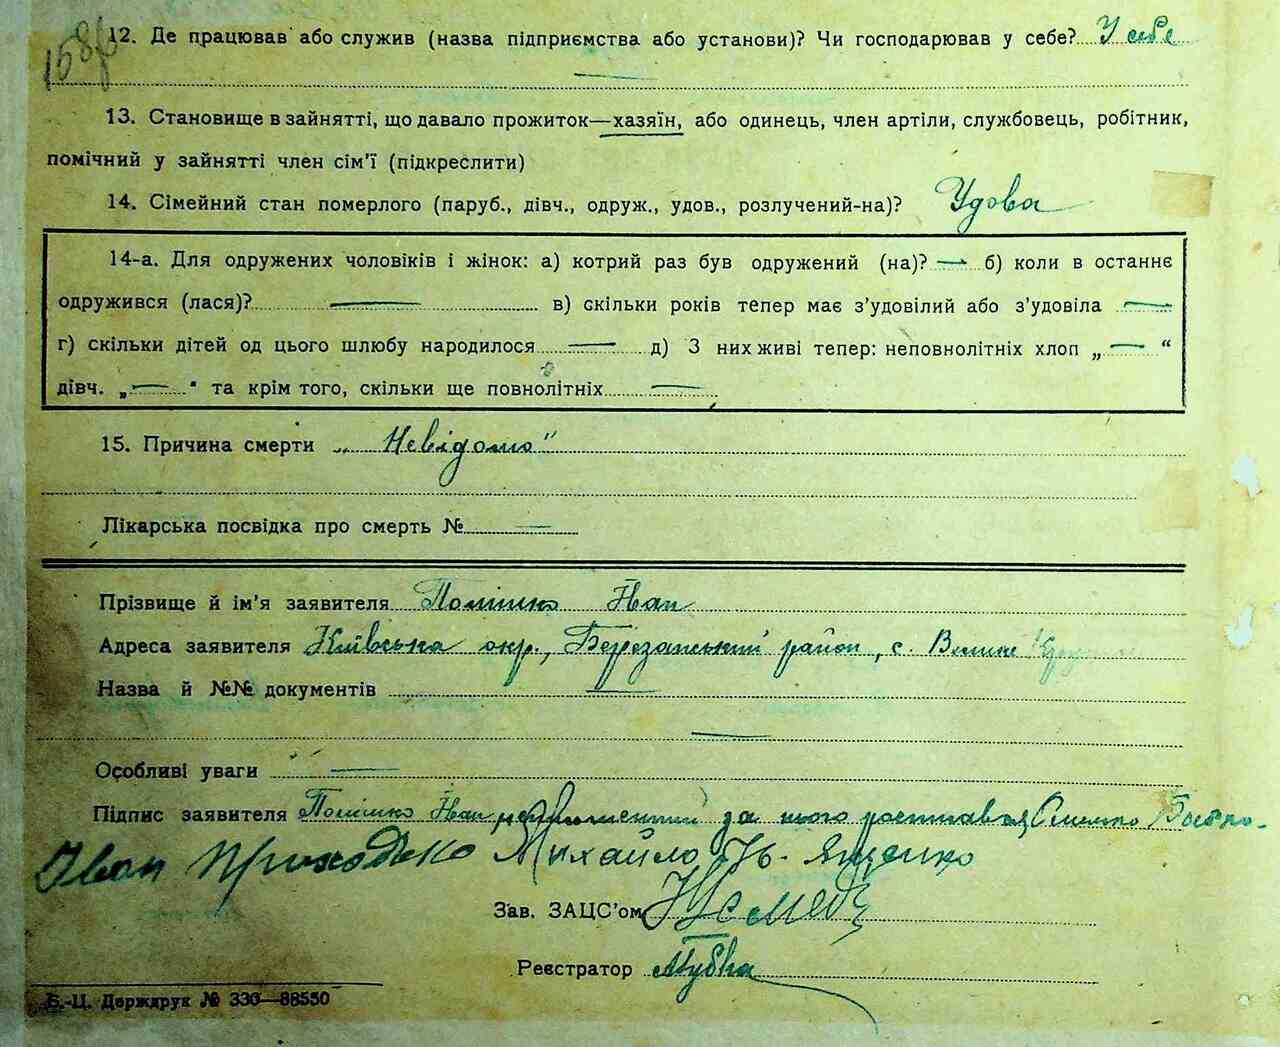 158
12. Де працював або служив (назва підприємства або установи)? Чи господарював у себе? У себе
13. Становище в зайнятті, що давало прожиток—хазяїн, або одинець, член артіли, службовець, робітник,
помічний у зайнятті член сім'ї (підкреслити)
14. Сімейний стан померлого (паруб., дівч., одруж., удов., розлучений-на)? Удова
14-а. Для одружених чоловіків і жінок: а) котрий раз був одружений (на)? — б) коли в останнє
одружився (лася)? — в) скільки років тепер має з'удовілий або з'удовіла —
г) скільки дітей од цього шлюбу народилося — д) З них живі тепер: неповнолітніх хлоп „ — “
дівч. „ — “ та крім того, скільки ще повнолітніх —
15. Причина смерти „Невідомо"
Лікарська посвідка про смерть № —
Прізвище й ім'я заявителя Помішко Нап
Адреса заявителя Київська окр., Березанський район, с. Велике
Назва й №№ документів —
Особливі уваги —
Підпис заявителя Помішко Нап за нього
Іван Приходько Михайло Яценко
Зав. ЗАЦС'ом
Реєстратор
Б.-Ц. Держдрук № 330—88550